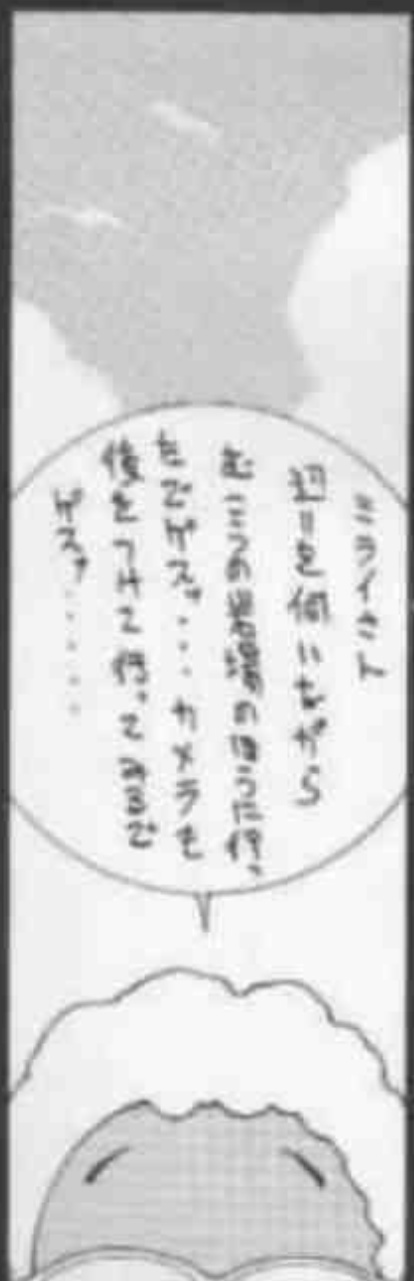 ミライさん
辺りを伺いながら
むこうの岩場のほうに行っ
たでゲス・・・カメラを
後をつけて行ってみるで
ゲス・・・・・